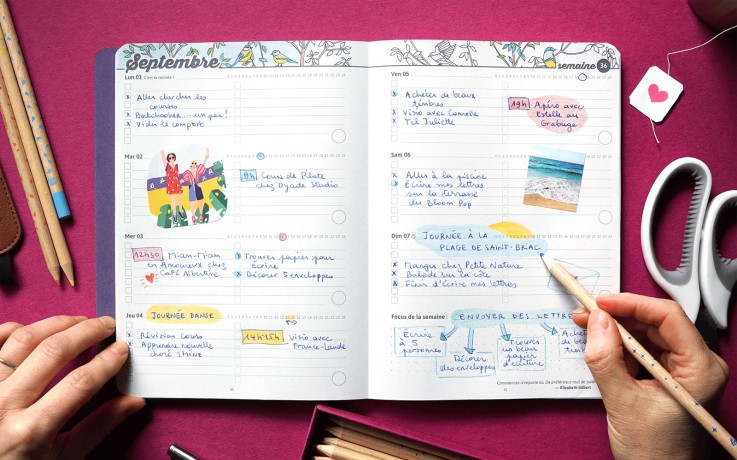 Septembre
Lun 01 C'est la rentrée !
Aller chercher les
courses
Batchcooker ... un peu !
Vider le compost
Mar 02
9h Cours de Pilate
chez Dyade Studio
Mer 03
12h30 Miam-Miam
en Amoureux chez
Café Albertine
Trouver papier pour
écrire
Décorer 5 enveloppes
Jeu 04 JOURNÉE DANSE
Révision cours
Apprendre nouvelle
choré SHINE
14h-15h Visio avec
France-Laude
semaine 36
Ven 05
Acheter de beaux
timbres
Visio avec Camille
Tel Juliette
19h Apéro avec
Estelle au
Grabuge
Sam 06
Aller à la piscine
Écrire mes lettres
sur la terrasse
du Bloom Pop
Dim 07 JOURNÉE À LA
PLAGE DE SAINT-BRIAC
Manger chez Petite Nature
Balade sur la côte
Finir d'écrire mes lettres
Focus de la semaine : ENVOYER DES LETTRE
Écrire
à 5
personnes
Décorer
des enveloppes
Trouver
un beau
papier
d'écriture
Ache
de be
timb
— Elizabeth Gilbert